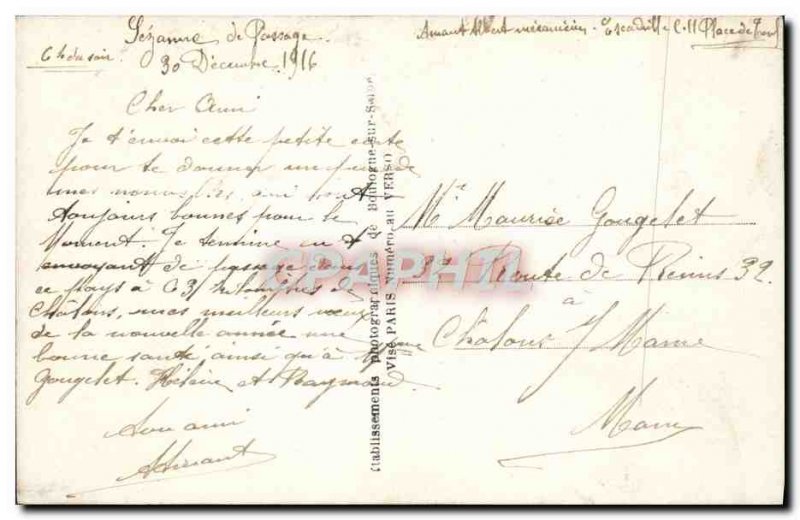 Sézanne de Passage.
6h du soir. 30 Décembre 1916
Amant Albert mécanicien Escadrille C.11 Place de
Cher Ami
Je t'envoi cette petite carte
pour te donner un peu de
mes nouvelles qui sont
toujours bonnes pour le
Moment. Je termine en t
envoyant de passage dans
ce pays à 63 kilomètres de
Châlons, mes meilleurs vœux
de la nouvelle année une
bonne santé, ainsi qu'à Mme
Gougelet. Hélène et Raymond.
Ton ami
Amant
Etablissements photographiques de Boulogne-sur-Seine
Visé PARIS Numéro au VERSO
CPAPHIL
Mr Maurice Gougelet
Route de Reims 32
à
Châlons s/ Marne
Marne